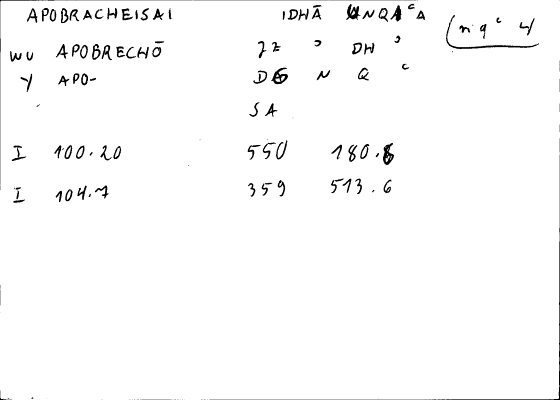 APOBRACHEISAI IDHĀ NQAᶜA (nqᶜ 4)
WU APOBRECHŌ ZZ ʾ DH ʾ
Y APO- DG N Q ᶜ
SA
I 100.20 550 180.6
I 104.7 359 513.6